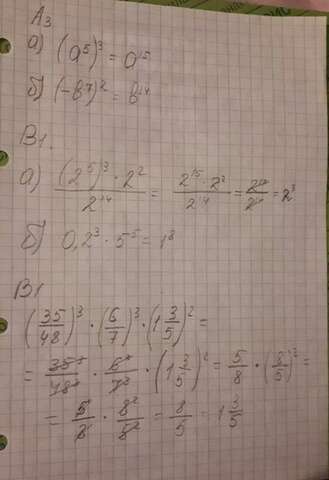 А3
а) (a⁵)³ = a¹⁵
б) (-b⁷)² = b¹⁴
В1.
а) (2⁵)³ · 2² / 2¹⁴ = 2¹⁵ · 2² / 2¹⁴ = 2¹⁷ / 2¹⁴ = 2³
б) 0,2³ · 5⁵ = 1⁸
В1
(35/48)³ · (6/7)³ · (1 3/5)² =
= 35³/48³ · 6³/7³ · (1 3/5)² = 5/8 · (8/5)² =
= 5/8 · 8²/5² = 8/5 = 1 3/5